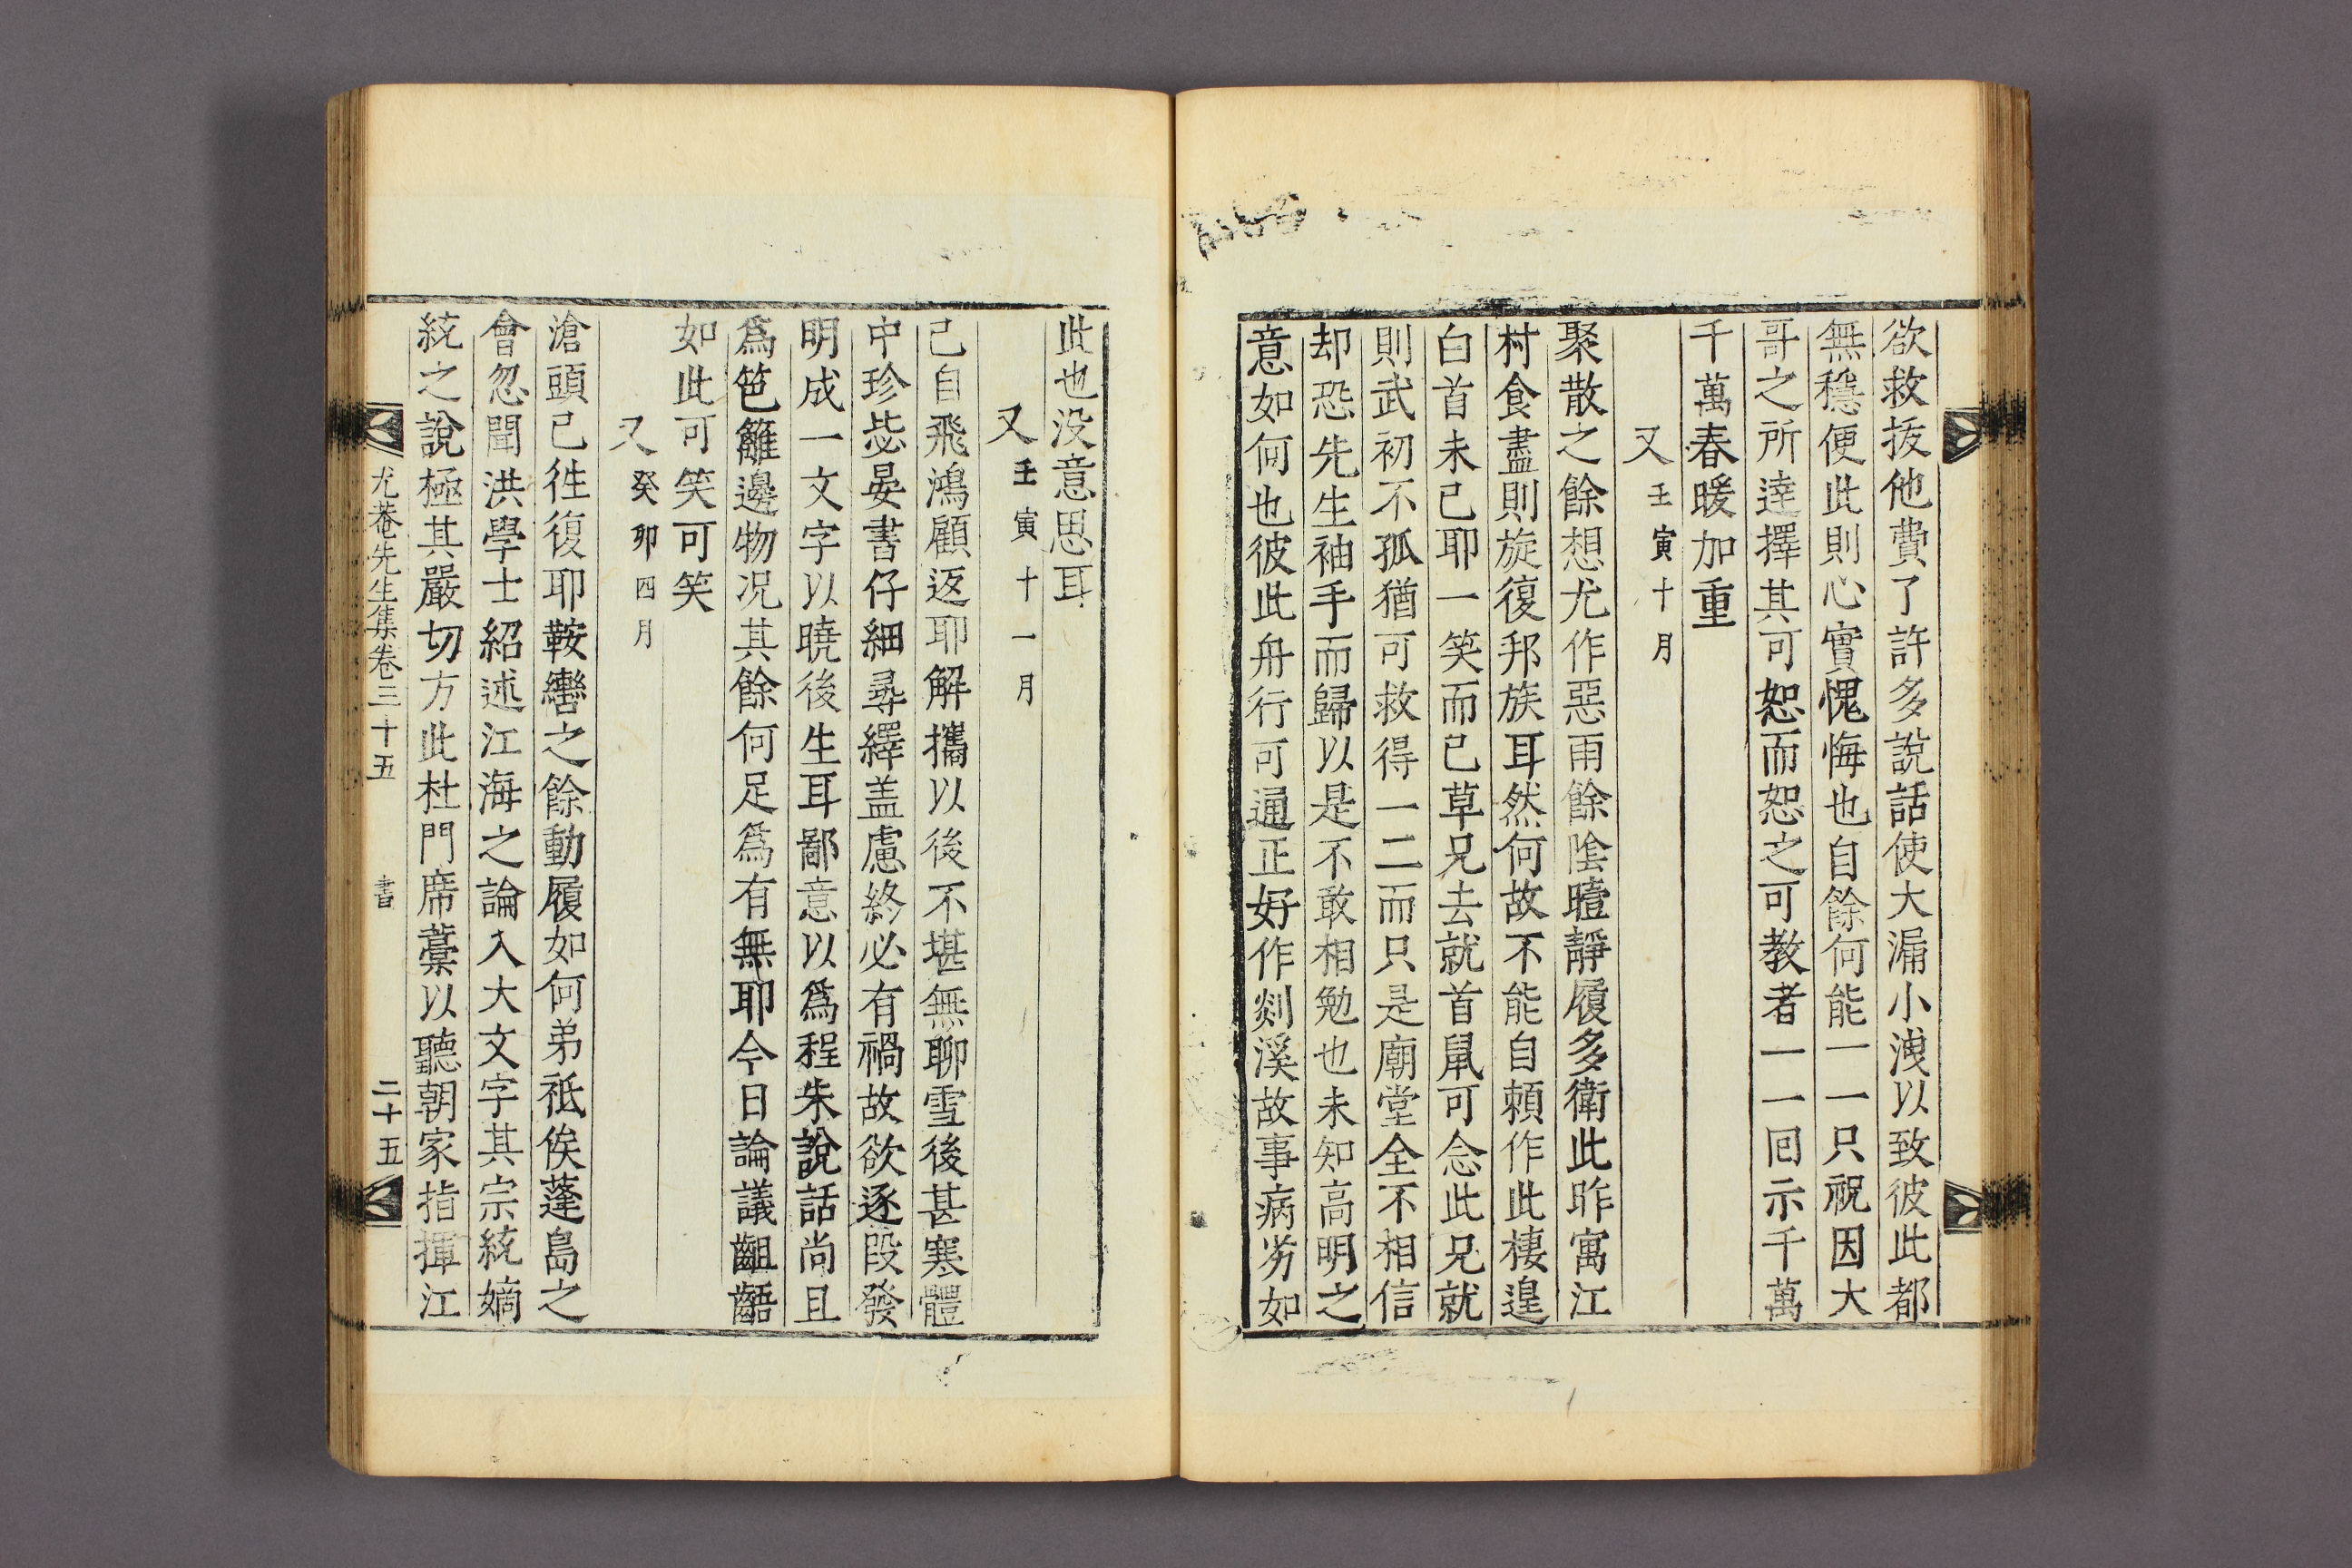 欲救抜他費了許多說話使大漏小洩以致彼此都
無穩便此則心實愧悔也自餘何能一一只祝因大
哥之所達擇其可恕而恕之可教者一一囘示千萬
千萬春暖加重
又壬寅十月
聚散之餘想尤作惡雨餘陰曀靜履多衛此昨寓江
村食盡則旋復邦族耳然何故不能自賴作此棲遑
白首未已耶一笑而已草兄去就首鼠可念此兄就
則武初不孤猶可救得一二而只是廟堂全不相信
却恐先生袖手而歸以是不敢相勉也未知高明之
意如何也彼此舟行可通正好作剡溪故事病劣如
此也没意思耳
又壬寅十一月
己自飛鴻顧返耶解攜以後不堪無聊雪後甚寒體
中珍毖晏書仔細尋繹盖慮終必有禍故欲逐段發
明成一文字以曉後生耳鄙意以爲程朱說話尚且
爲笆籬邊物况其餘何足爲有無耶今日論議齟齬
如此可笑可笑
又癸卯四月
滄頭已徃復耶鞍轡之餘動履如何弟祗俟蓬島之
會忽聞洪學士紹述江海之論入大文字其宗統嫡
統之說極其嚴切方此杜門席藁以聽朝家指揮江
尤菴先生集卷三十五 書 二十五